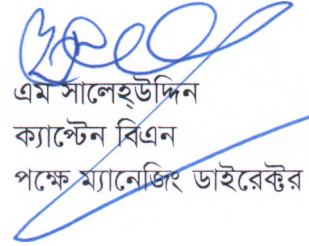 এম সালেহ্উদ্দিন
ক্যাপ্টেন বিএন
পক্ষে ম্যানেজিং ডাইরেক্টর